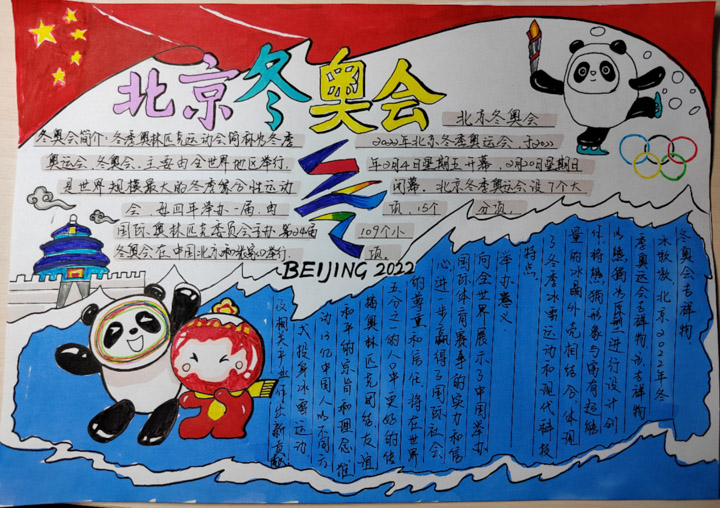 北京冬奥会
冬奥会简介:冬季奥林匹克运动会简称为冬季
奥运会、冬奥会.主要由全世界地区举行,
是世界规模最大的冬季综合性运动
会,每四年举办一届.由
国际奥林匹克委员会主办.第24届
冬奥会在中国北京和张家口举行.
北京冬奥会
2022年北京冬季奥运会,于2022
年2月4日星期五开幕,2月20日星期日
闭幕。北京冬季奥运会设7个大
项,15个分项,
109个小
项。
BEIJING 2022
冬奥会吉祥物
冰墩墩,北京2022年冬
季奥运会吉祥物.该吉祥物
以熊猫为原型进行设计创
作.将熊猫形象与富有超能
量的冰晶外壳相结合,体现
了冬季冰雪运动和现代科技
特点
举办意义
向全世界展示了中国举办
国际体育赛事的实力和信
心,进一步赢得了国际社会
的尊重和信任.将在世界
五分之一的人口中更好的传
播奥林匹克团结、友谊
和平的宗旨和理念.推
动13亿中国人以不同方
式投身冰雪运动